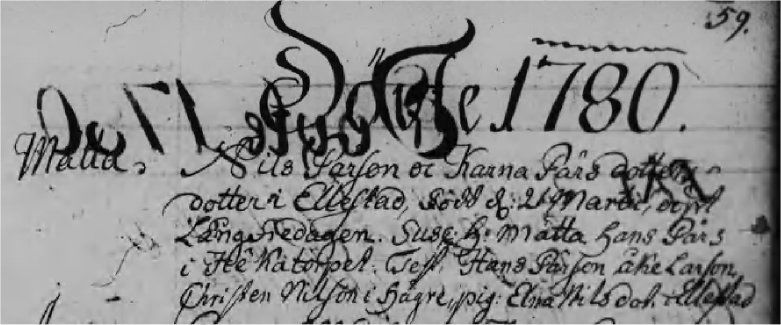 59.
Födde 1780.
Matta. Nils Larson oc Karna Pärs dotters
dotter i Ellestad, född d. 21 Martii, döpt
Långfredagen. Susc: H: Matta Hans Pärs
i Hekatorpet. Test. Hans Pärson åke Larson,
Christen Nilson i Hägre, pig: Elna Nils dot. i Ellestad